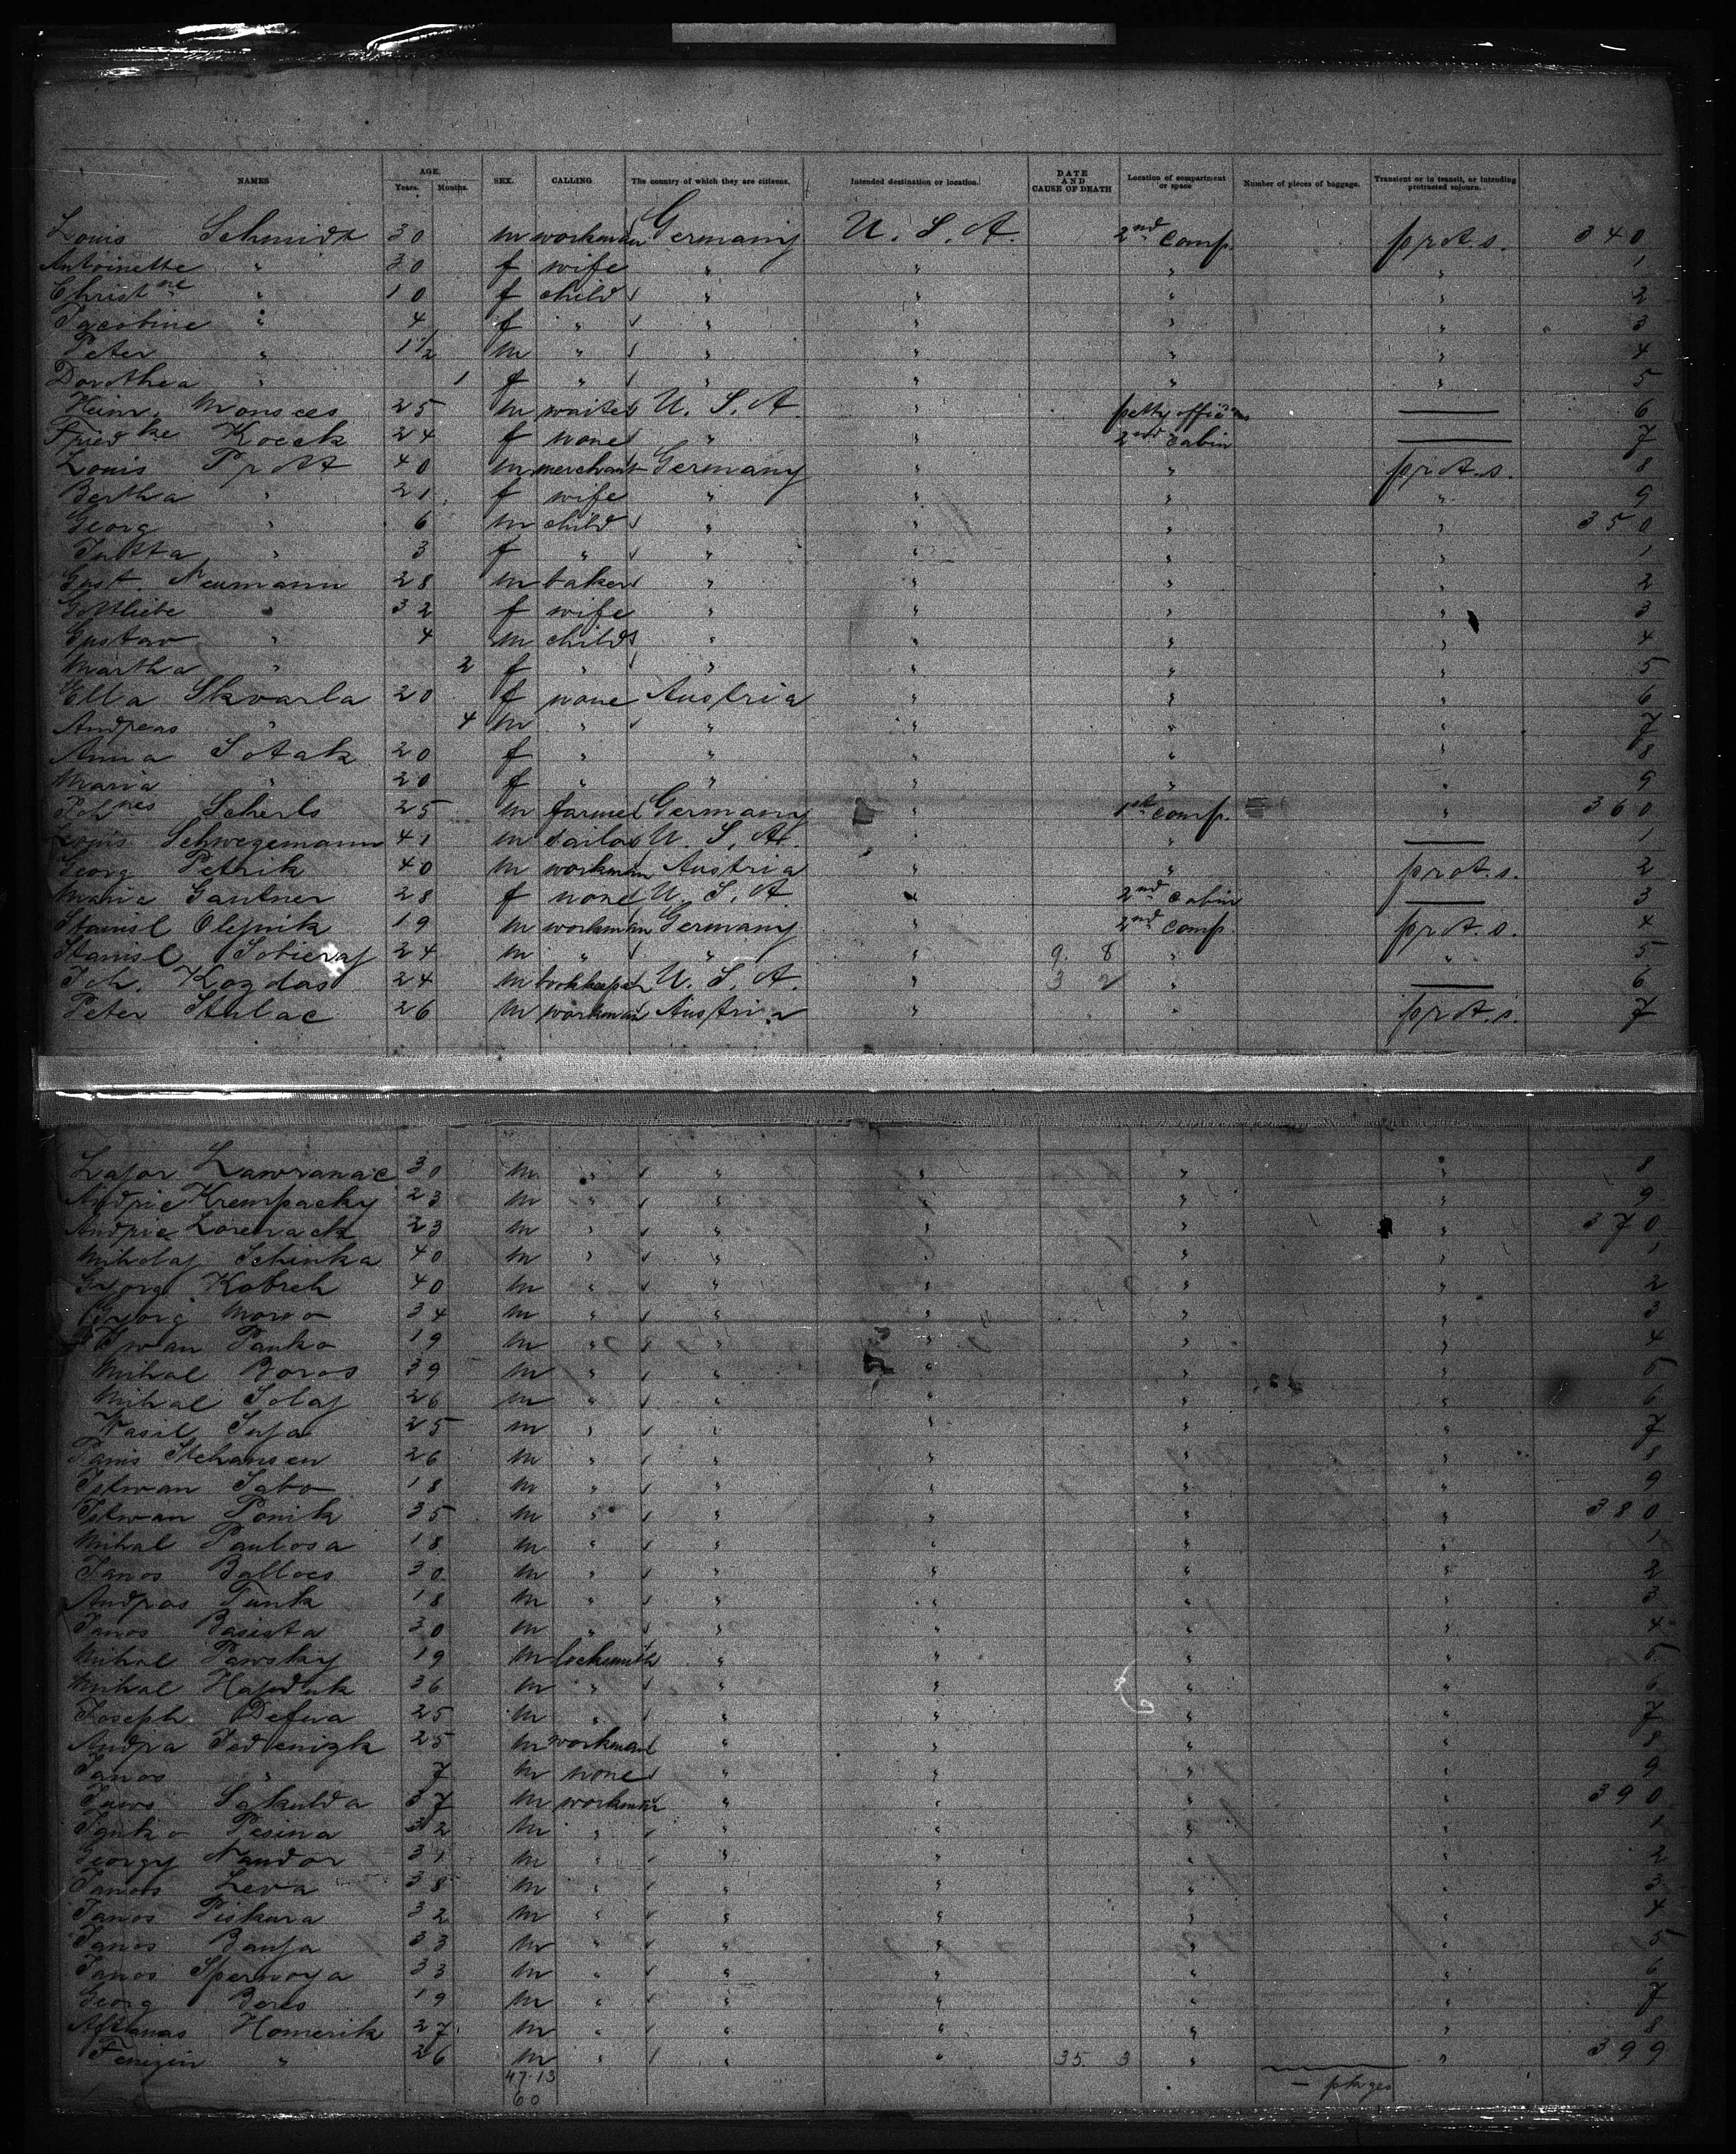 NAMES AGE. Years. Months. SEX. CALLING The country of which they are citizens. Intended destination or location. DATE AND CAUSE OF DEATH Location of compartment or space Number of pieces of baggage. Transient or in transit, or intending protracted sojourn.
Louis Schmidt 30 m workman Germany U. S. A. 2nd comp. prot. s. 340
Antoinette " 30 f wife " " " " 1
Christne " 10 f child " " " " 2
Jacobine " 4 f " " " " " 3
Peter " 1 1/2 m " " " " " 4
Dorothea " 1 f " " " " " 5
Heinr. Monsees 25 m waiter U. S. A. " petty officers — 6
Friedke Koeck 24 f none " " 2nd cabin — 7
Louis Prott 40 m merchant Germany " " prot. s. 8
Bertha " 21 f wife " " " " 9
Georg " 6 m child " " " " 350
Jutta " 3 f " " " " " 1
Gust. Neumann 28 m baker " " " " 2
Gottliebe " 32 f wife " " " " 3
Gustav " 4 m child " " " " 4
Martha " 2 f " " " " " 5
Ella Skvarla 20 f none Austria " " " 6
Andreas " 4 m " " " " " 7
Anna Sotak 20 f " " " " " 8
Maria " 20 f " " " " " 9
Johnes Scherls 25 m farmer Germany " 1st comp. " 360
Louis Schwegemann 41 m sailor U. S. A. " " — 1
Georg Petrik 40 m workman Austria " " prot. s. 2
Maria Gantner 28 f none U. S. A. " 2nd cabin — 3
Stanisl Olejnik 19 m workman Germany " 2nd comp. prot. s. 4
Stanisl Sobieraj 24 m " " " 9. 8 " " 5
Joh. Kozdas 24 m bookkeeper U. S. A. 3 2 " — 6
Peter Stulac 26 m workman Austria " " prot. s. 7
Lajor Lawranac 30 m " " " " " 8
Andric Krempacky 23 m " " " " " 9
Andric Lorenack 23 m " " " " " 370
Mikolaj Schinka 40 m " " " " " 1
Györg Kobreh 40 m " " " " " 2
Györg Moro 34 m " " " " " 3
Iwan Panko 19 m " " " " " 4
Mihal Boros 39 m " " " " " 5
Mihal Solaj 26 m " " " " " 6
Wasil Suja 25 m " " " " " 7
Panis Stehansen 26 m " " " " " 8
Istwan Sabo 18 m " " " " " 9
Istwan Ponik 35 m " " " " " 380
Mihal Paulosa 18 m " " " " " 1
Janos Balloes 30 m " " " " " 2
Andras Funk 18 m " " " " " 3
Janos Basista 30 m " " " " " 4
Mihal Pawsky 19 m locksmith " " " " 5
Mihal Hajduk 36 m " " " " " 6
Joseph Defua 25 m " " " " " 7
Andra Fedenizk 25 m workman " " " " 8
Janos " 7 m none " " " " 9
Juws Sakulda 37 m workman " " " " 390
Janko Pesina 32 m " " " " " 1
Georgy Nandor 31 m " " " " " 2
Janos Leva 38 m " " " " " 3
Janos Piskura 32 m " " " " " 4
Janos Banja 33 m " " " " " 5
Janos Spernoya 33 m " " " " " 6
Georg Beres 19 m " " " " " 7
Aftanas Homerik 27 m " " " " " 8
Fenizin " 26 m " " " 35. 3 " " 399
47.13 — pkges
60